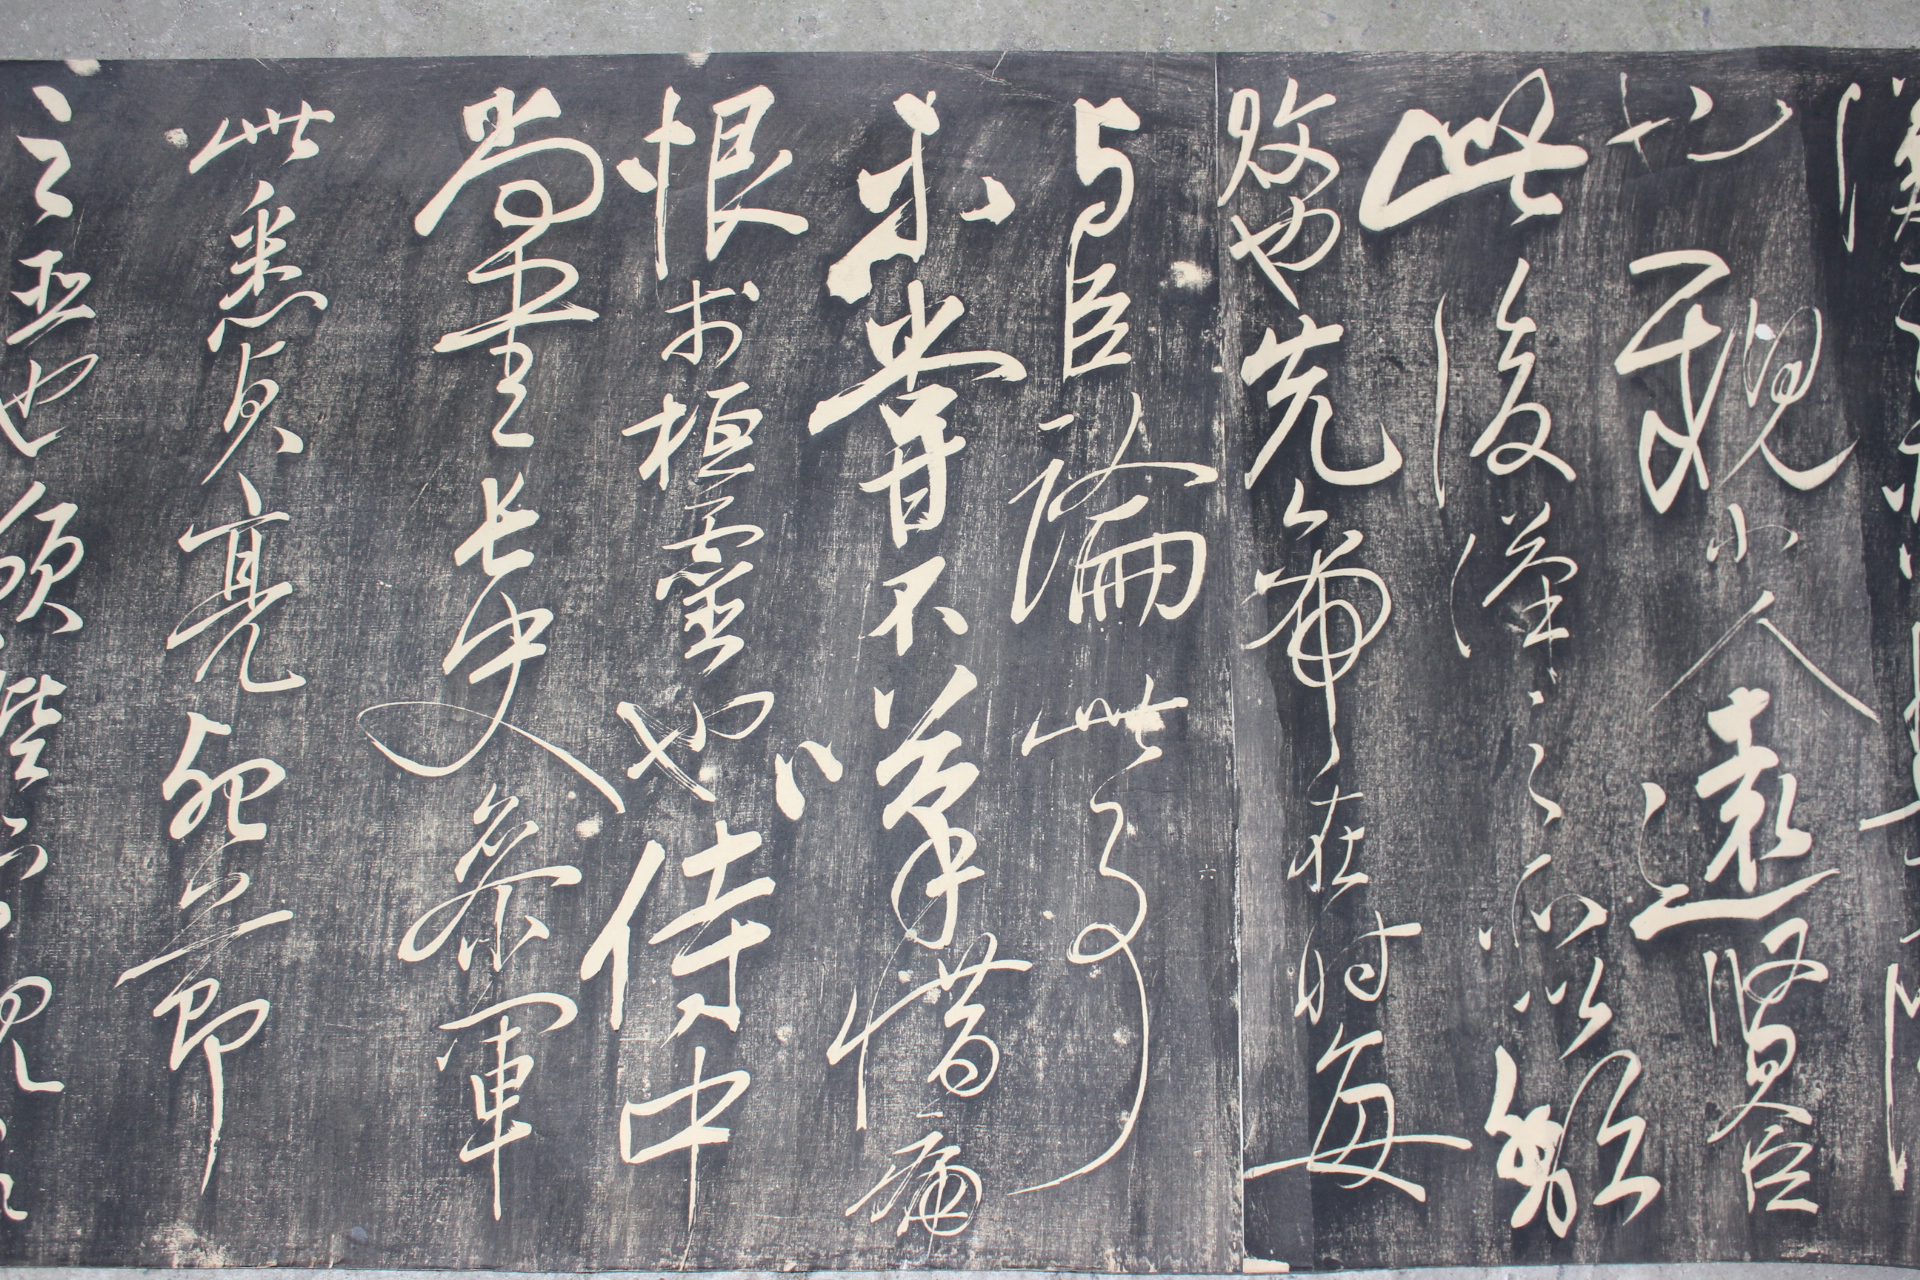 也親小人遠賢臣
此後漢之所以頹
敗也先帝在时每
与臣論此事
未嘗不嘆惜痛
恨於桓靈也侍中
尚書長史參軍
此悉貞亮死節
之臣也願陛下親